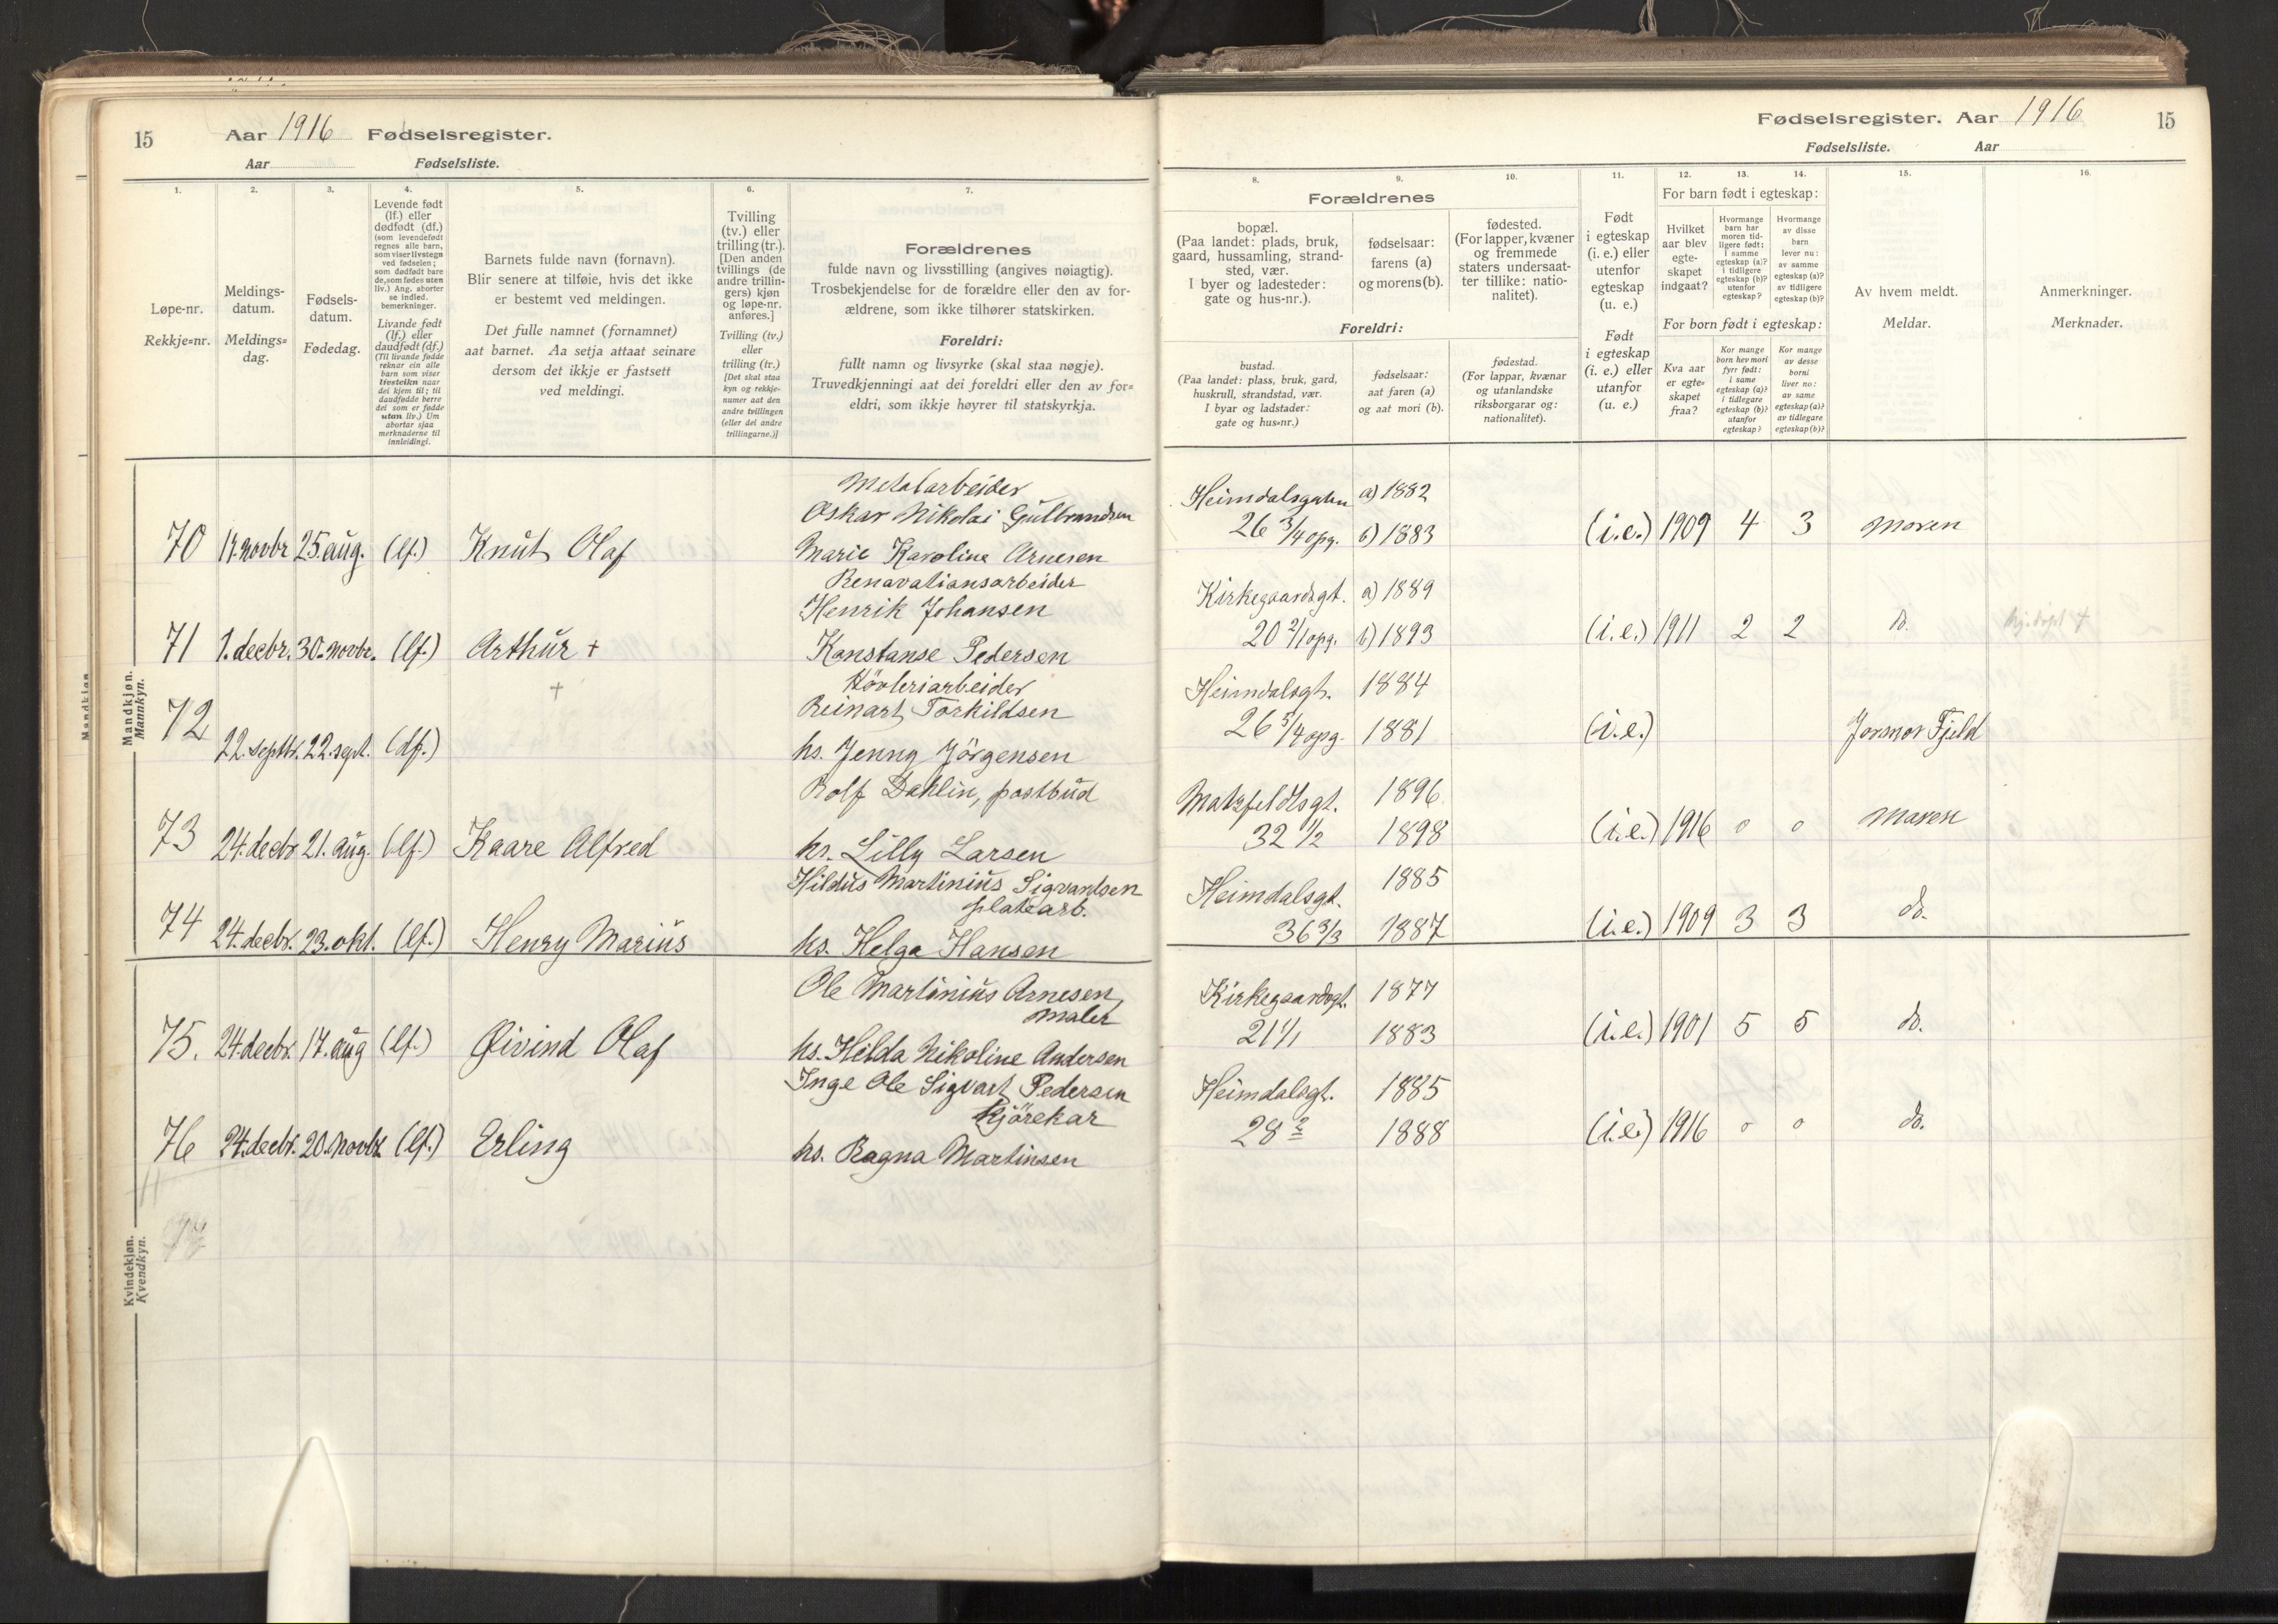 15 Aar 1916 Fødselsregister.
Aar Fødselsliste.
1.
Løpe-nr.
Rekkje=nr.
2.
Meldings-
datum.
Meldings=
dag.
3.
Fødsels-
datum.
Fødedag.
4.
Levende født
(lf.) eller
dødfødt (df.)
(som levendefødt
regnes alle barn,
som viser livstegn
ved fødselen;
som dødfødt bare
de, som fødes uten
liv.) Ang. aborter
se indled.
bemerkninger.
Livande født
(lf.) eller
daudfødt (df.)
(Til livande fødde
reknar ein alle
barn som viser
livsteikn naar
dei kjem til; til
daudfødde berre
dei som er fødde
utan liv.) Um
abortar sjaa
merknaderne til
innleidingi.
5.
Barnets fulde navn (fornavn).
Blir senere at tilføie, hvis det ikke
er bestemt ved meldingen.
Det fulle namnet (fornamnet)
aat barnet. Aa setja attaat seinare
dersom det ikkje er fastsett
ved meldingi.
6.
Tvilling
(tv.) eller
trilling (tr.).
[Den anden
tvillings (de
andre trillin-
gers) kjøn
og løpe-nr.
anføres.]
Tvilling (tv.)
eller
trilling (tr.)
[Det skal staa
kyn og rekkje-
numer aat den
andre tvillingen
(eller dei andre
trillingarne.)]
7.
Forældrenes
fulde navn og livsstilling (angives nøiagtig).
Trosbekjendelse for de forældre eller den av for-
ældrene, som ikke tilhører statskirken.
Foreldri:
fullt namn og livsyrke (skal staa nøgje).
Truvedkjenningi aat dei foreldri eller den av for=
eldri, som ikkje høyrer til statskyrkja.
Mandkjøn.
Mannkyn.
Metalarbeider
Oskar Nikolai Gulbrandsen
70 17. novbr 25. aug. (lf.) Knut Olaf Marie Karoline Arnesen
Renavatiansarbeider
Henrik Johansen
71 1. decbr. 30. novbr. (lf.) Arthur + Konstanse Pedersen
+ Hövleriarbeider
72 Reinart Torkildsen
22. septbr. 22. sept. (df.) hs. Jenny Jörgensen
Rolf Dahlin, postbud
73 24. decbr 21. aug. (lf.) Kaare Alfred hs. Lilly Larsen
Hildus Martinius Sigvartsen
platearb.
74 24. decbr. 23. okt. (lf.) Henry Marius hs. Helga Hansen
Ole Martinius Arnesen,
maler
75. 24. decbr. 17. aug (lf.) Øivind Olaf hs. Hilda Nikoline Andersen
Inge Ole Sigvart Pedersen
Kjörekar
76 24. decbr. 20. novbr (lf.) Erling hs. Ragna Martinsen
77
Kvindekjøn.
Kvendkyn.
Fødselsregister. Aar 1916 15
Fødselsliste. Aar
8.
9.
10.
Forældrenes
bopæl.
(Paa landet: plads, bruk,
gaard, hussamling, strand-
sted, vær.
I byer og ladesteder:
gate og hus-nr.).
fødselsaar:
farens (a)
og morens (b).
fødested.
(For lapper, kvæner
og fremmede
staters undersaat-
ter tillike: natio-
nalitet).
Foreldri:
bustad.
(Paa landet: plass, bruk, gard,
huskrull, strandstad, vær.
I byar og ladstader:
gate og hus=nr.)
fødselsaar:
aat faren (a)
og aat mori (b).
fødestad.
(For lappar, kvænar
og utanlandske
riksborgarar og:
nationalitet).
11.
Født
i egteskap
(i. e.) eller
utenfor
egteskap
(u. e.)
Født
i egteskap
(i. e.) eller
utanfor
(u. e.)
12.
13.
14.
For barn født i egteskap:
Hvilket
aar blev
egte-
skapet
indgaat?
Hvormange
barn har
moren tid-
ligere født:
i samme
egteskap (a)?
i tidligere
egteskap (b)?
utenfor
egteskap?
Hvormange
av disse
barn
lever nu:
av samme
egteskap (a)?
av tidligere
egteskap (b)?
For born født i egteskap:
Kva aar
er egte=
skapet
fraa?
Kor mange
born hev mori
fyrr født:
i same
egteskap (a)?
i tidlegare
egteskap (b)?
utanfor
egteskap?
Kor mange
av desse
borni
liver no:
av same
egteskap (a)?
av tidlegare
egteskap (b)?
15.
Av hvem meldt.
Meldar.
16.
Anmerkninger.
Merknader.
Heimdalsgaten a) 1882
26 3/4 opg. b) 1883 (i.e.) 1909 4 3 Moren
Kirkegaardsgt. a) 1889
20 2/1 opg. b) 1893 (i.e.) 1911 2 2 do.
Heimdalsgt. 1884
26 5/4 opg. 1881 (i.e.) Jormor Fjeld
Matzfeldtsgt. 1896
32 1/2 1898 (i.e.) 1916 0 0 Moren
Heimdalsgt. 1885
36 3/3 1887 (i.e.) 1909 3 3 do.
Kirkegaardsgt. 1877
21 1/1 1883 (i.e.) 1901 5 5 do.
Heimdalsgt. 1885
28 2 1888 (i.e.) 1916 0 0 do.